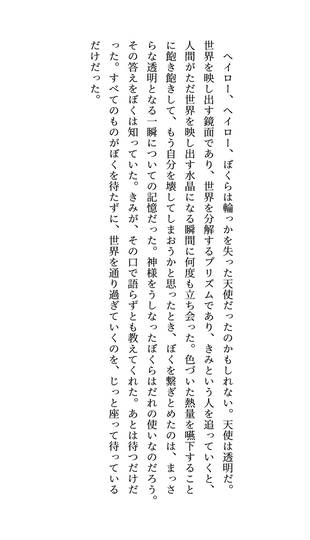 ヘイロー、ヘイロー、ぼくらは輪っかを失った天使だったのかもしれない。天使は透明だ。
世界を映し出す鏡面であり、世界を分解するプリズムであり、きみという人を追っていくと、
人間がただ世界を映し出す水晶になる瞬間に何度も立ち会った。色づいた熱量を嚥下すること
に飽き飽きして、もう自分を壊してしまおうかと思ったとき、ぼくを繋ぎとめたのは、まっさ
らな透明となる一瞬についての記憶だった。神様をうしなったぼくらはだれの使いなのだろう。
その答えをぼくは知っていた。きみが、その口で語らずとも教えてくれた。あとは待つだけだ
った。すべてのものがぼくを待たずに、世界を通り過ぎていくのを、じっと座って待っている
だけだった。